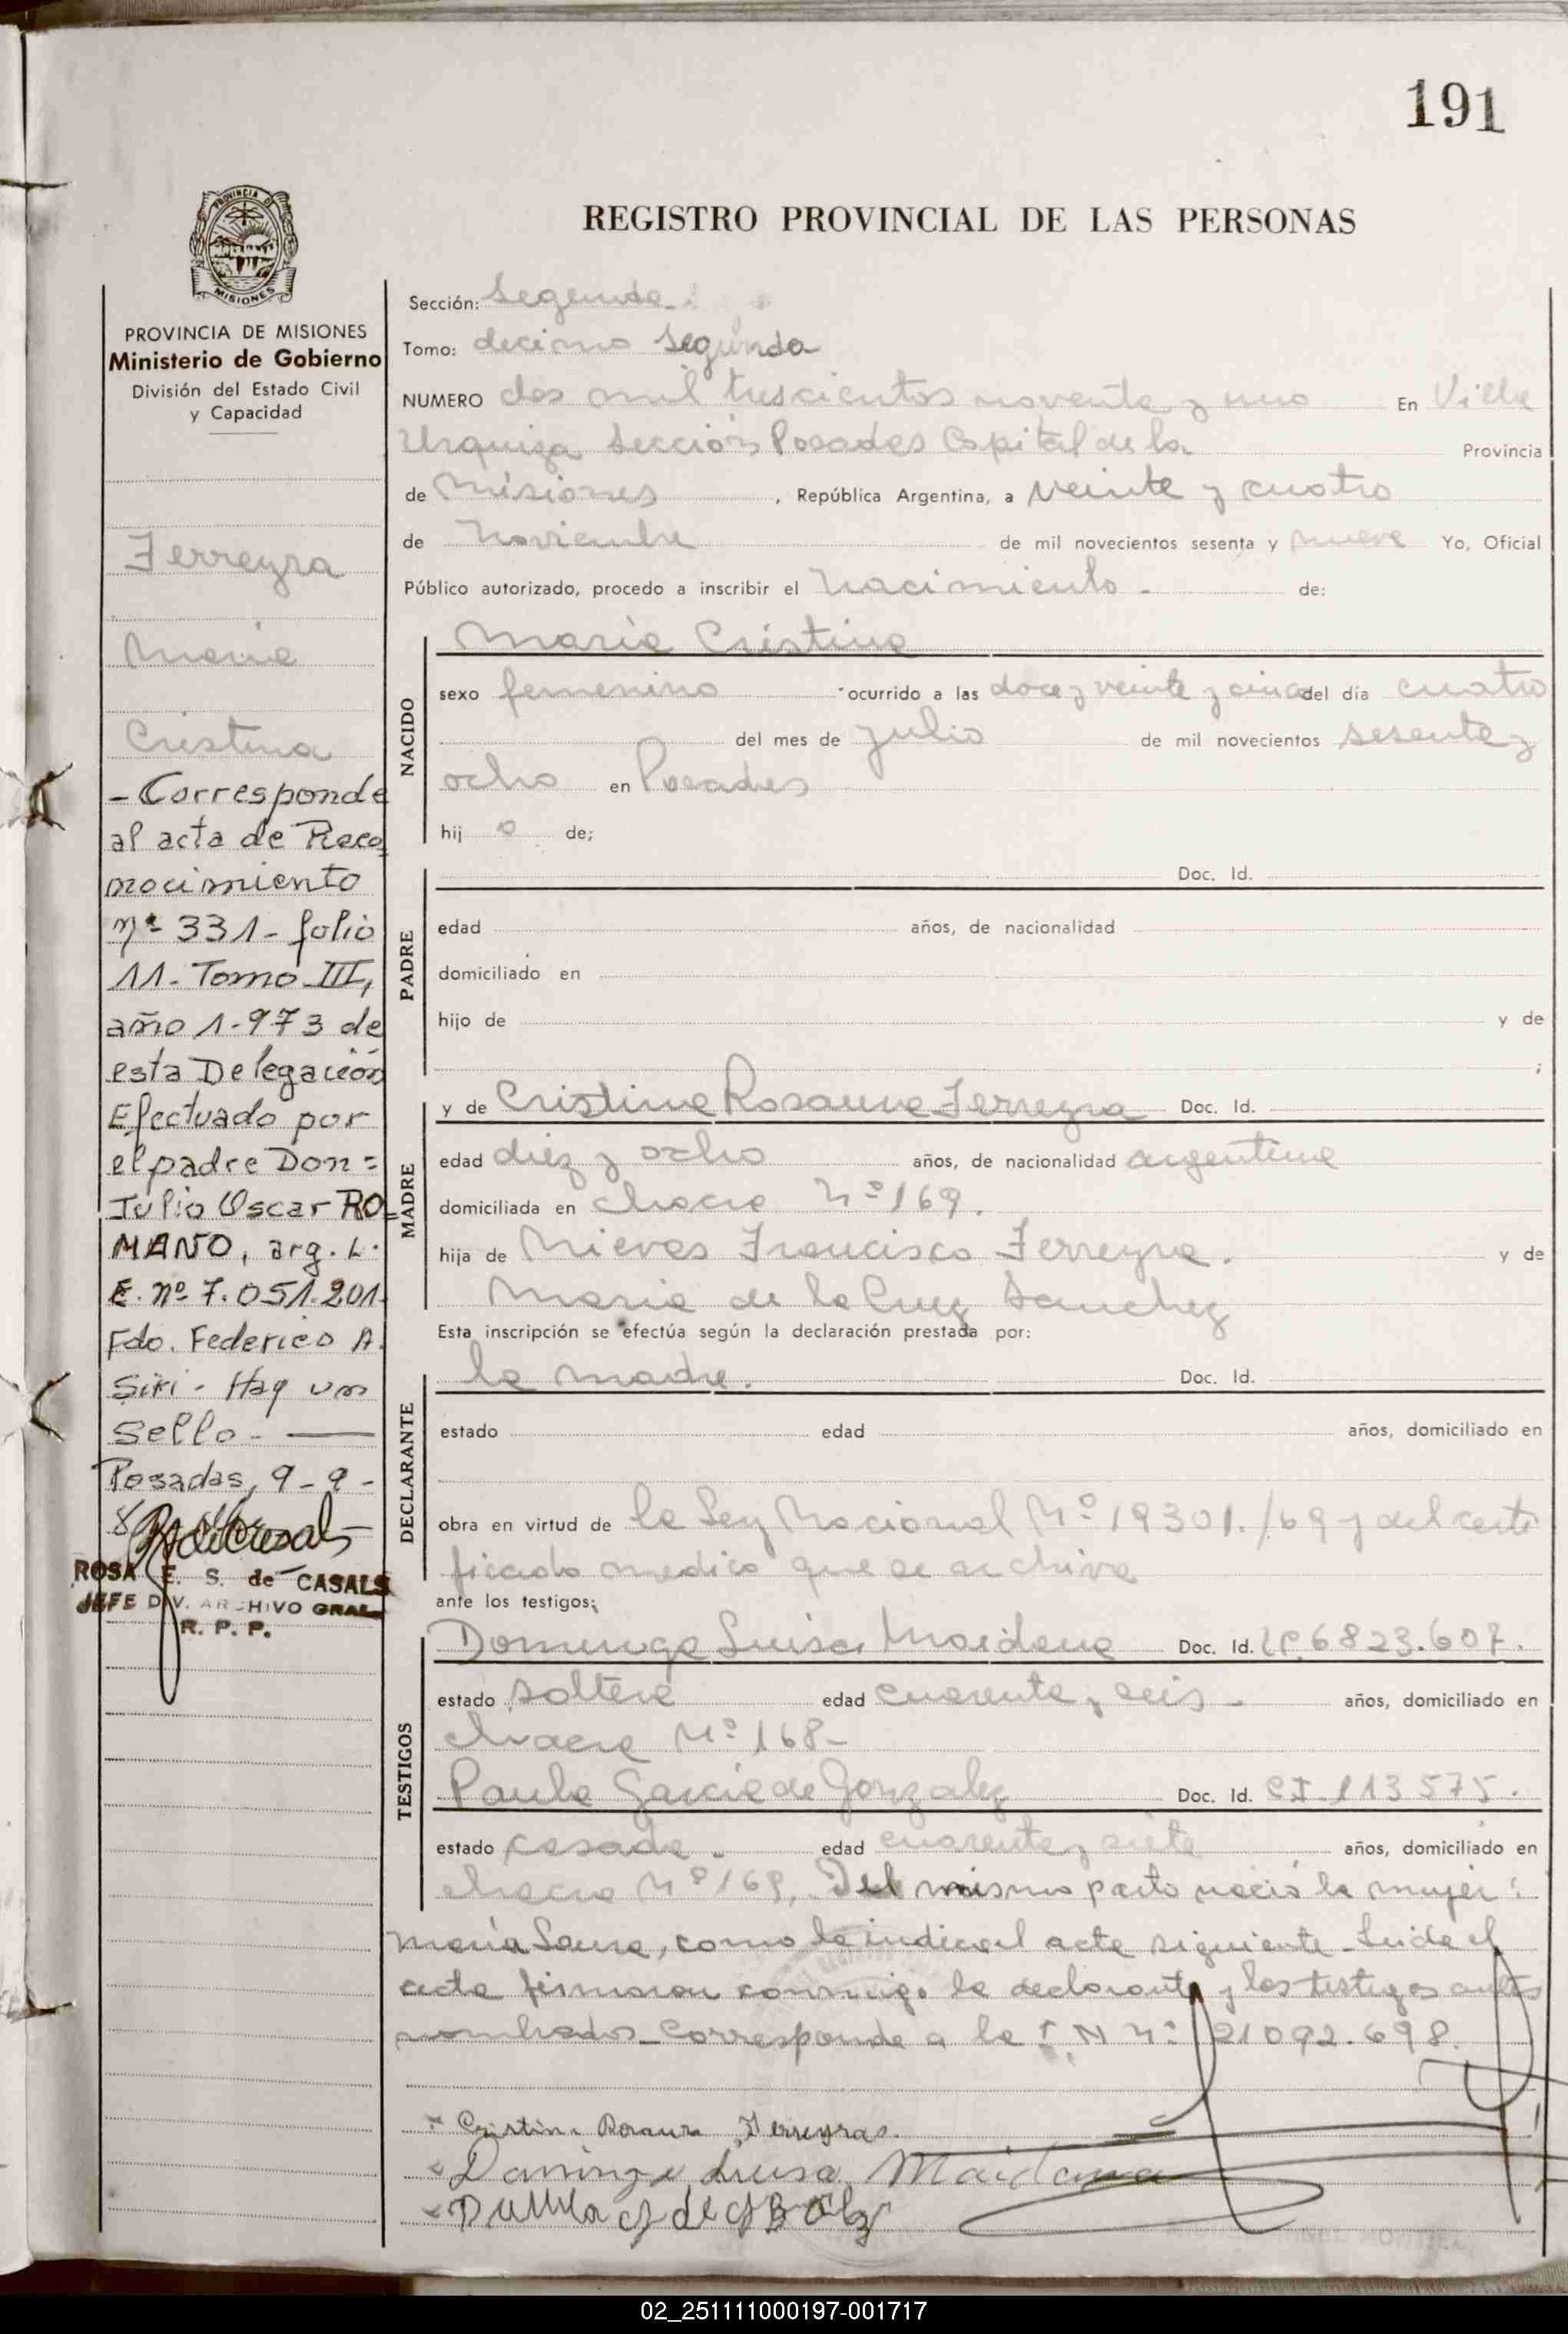 191
PROVINCIA DE
MISIONES
PROVINCIA DE MISIONES
Ministerio de Gobierno
División del Estado Civil
y Capacidad
Ferreyra
Maria
Cristina
- Corresponde
al acta de Reco
nocimiento
nº 331 - folio
11 - Tomo III,
año 1.973 de
esta Delegación
Efectuado por
el padre Don =
Julio Oscar RO=
MANO, arg. L.
E. nº 7.051.201.
Fdo. Federico A.
Siri - Hay un
Sello -
Posadas, 9-9-
ROSA E. S. de CASALS
JEFE DIV. ARCHIVO GRAL.
R. P. P.
REGISTRO PROVINCIAL DE LAS PERSONAS
Sección: Segunda.
Tomo: decimo segundo
NUMERO dos mil trescientos noventa y uno En Villa
Urquiza Sección Posadas Capital de la Provincia
de Misiones , República Argentina, a veinte y cuatro
de Noviembre de mil novecientos sesenta y nueve Yo, Oficial
Público autorizado, procedo a inscribir el nacimiento - de:
NACIDO
Maria Cristina
sexo femenino ocurrido a las doce y veinte y cinco del día cuatro
del mes de julio de mil novecientos sesenta y
ocho en Posadas
hij a de;
PADRE
Doc. Id.
edad años, de nacionalidad
domiciliado en
hijo de y de
;
MADRE
y de Cristina Rosaura Ferreyra Doc. Id.
edad diez y ocho años, de nacionalidad argentina
domiciliada en chacra Nº 169.
hija de Nieves Francisco Ferreyra. y de
Maria de la Cruz Sanchez
Esta inscripción se efectúa según la declaración prestada por:
DECLARANTE
la madre. Doc. Id.
estado edad años, domiciliado en
obra en virtud de la Ley Nacional Nº 19301./69 y del certi
ficado medico que se archiva
ante los testigos;
TESTIGOS
Dominga Luisa Maidana Doc. Id. LC. 6823.607.
estado soltera edad cuarenta y seis - años, domiciliado en
chacra Nº 168 -
Paula Garcia de Gonzalez Doc. Id. CI. 113575.
estado casada - edad cuarenta y siete años, domiciliado en
chacra Nº 169. Del mismo parto nació la mujer:
María Laura, como lo indica el acta siguiente - Leida el
acta firmaron conmigo la declarante y los testigos antes
nombrados - Corresponde a la I N Nº 21092.698.
Cristina Rosaura Ferreyra.
Dominga Luisa Maidana
02_251111000197-001717